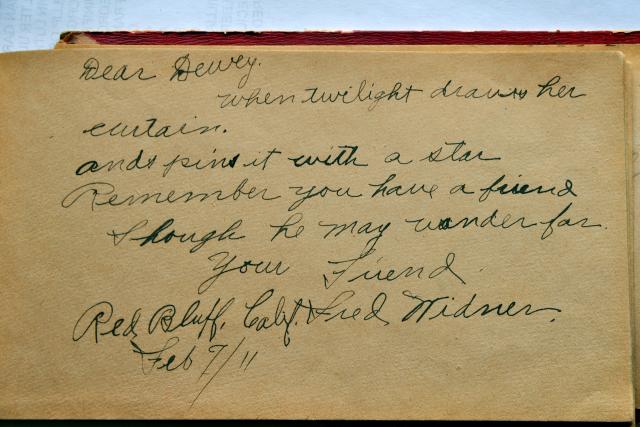 Dear Dewey.
when twilight draws her
curtain.
and pins it with a star
Remember you have a friend
Though he may wander far.
Your Friend
Red Bluff, Calif. Fred Widner.
Feb 7/11